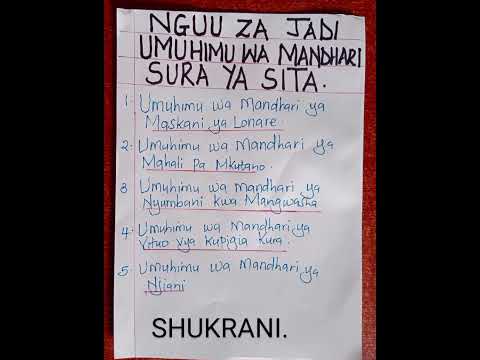 NGUU ZA JADI
UMUHIMU WA MANDHARI
SURA YA SITA.
1. Umuhimu wa Mandhari ya
Maskani ya Lonare.
2. Umuhimu wa Mandhari ya
Mahali Pa Mkutano.
3 Umuhimu wa mandhari ya
Nyumbani kwa Mangwasha
4. Umuhimu wa Mandhari ya
Vituo vya kupigia kura.
5. Umuhimu wa Mandhari ya
Njiani
SHUKRANI.